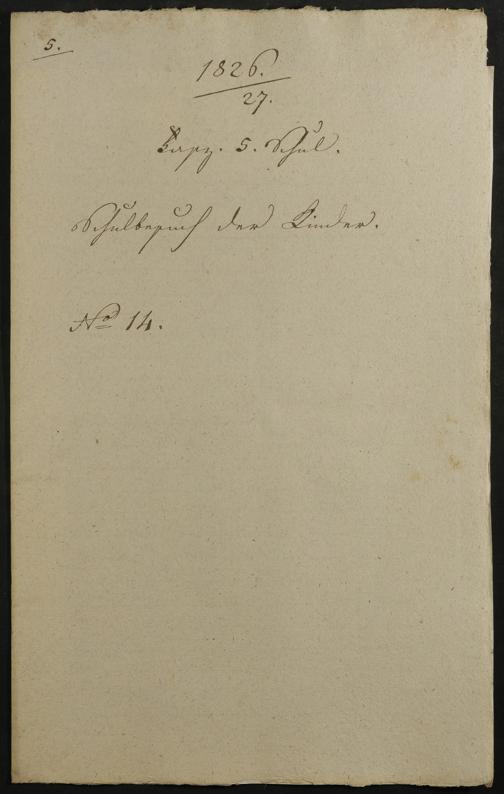 5.
1826.
27.
5. Schul.
Schulbesuch der Kinder.
No 14.